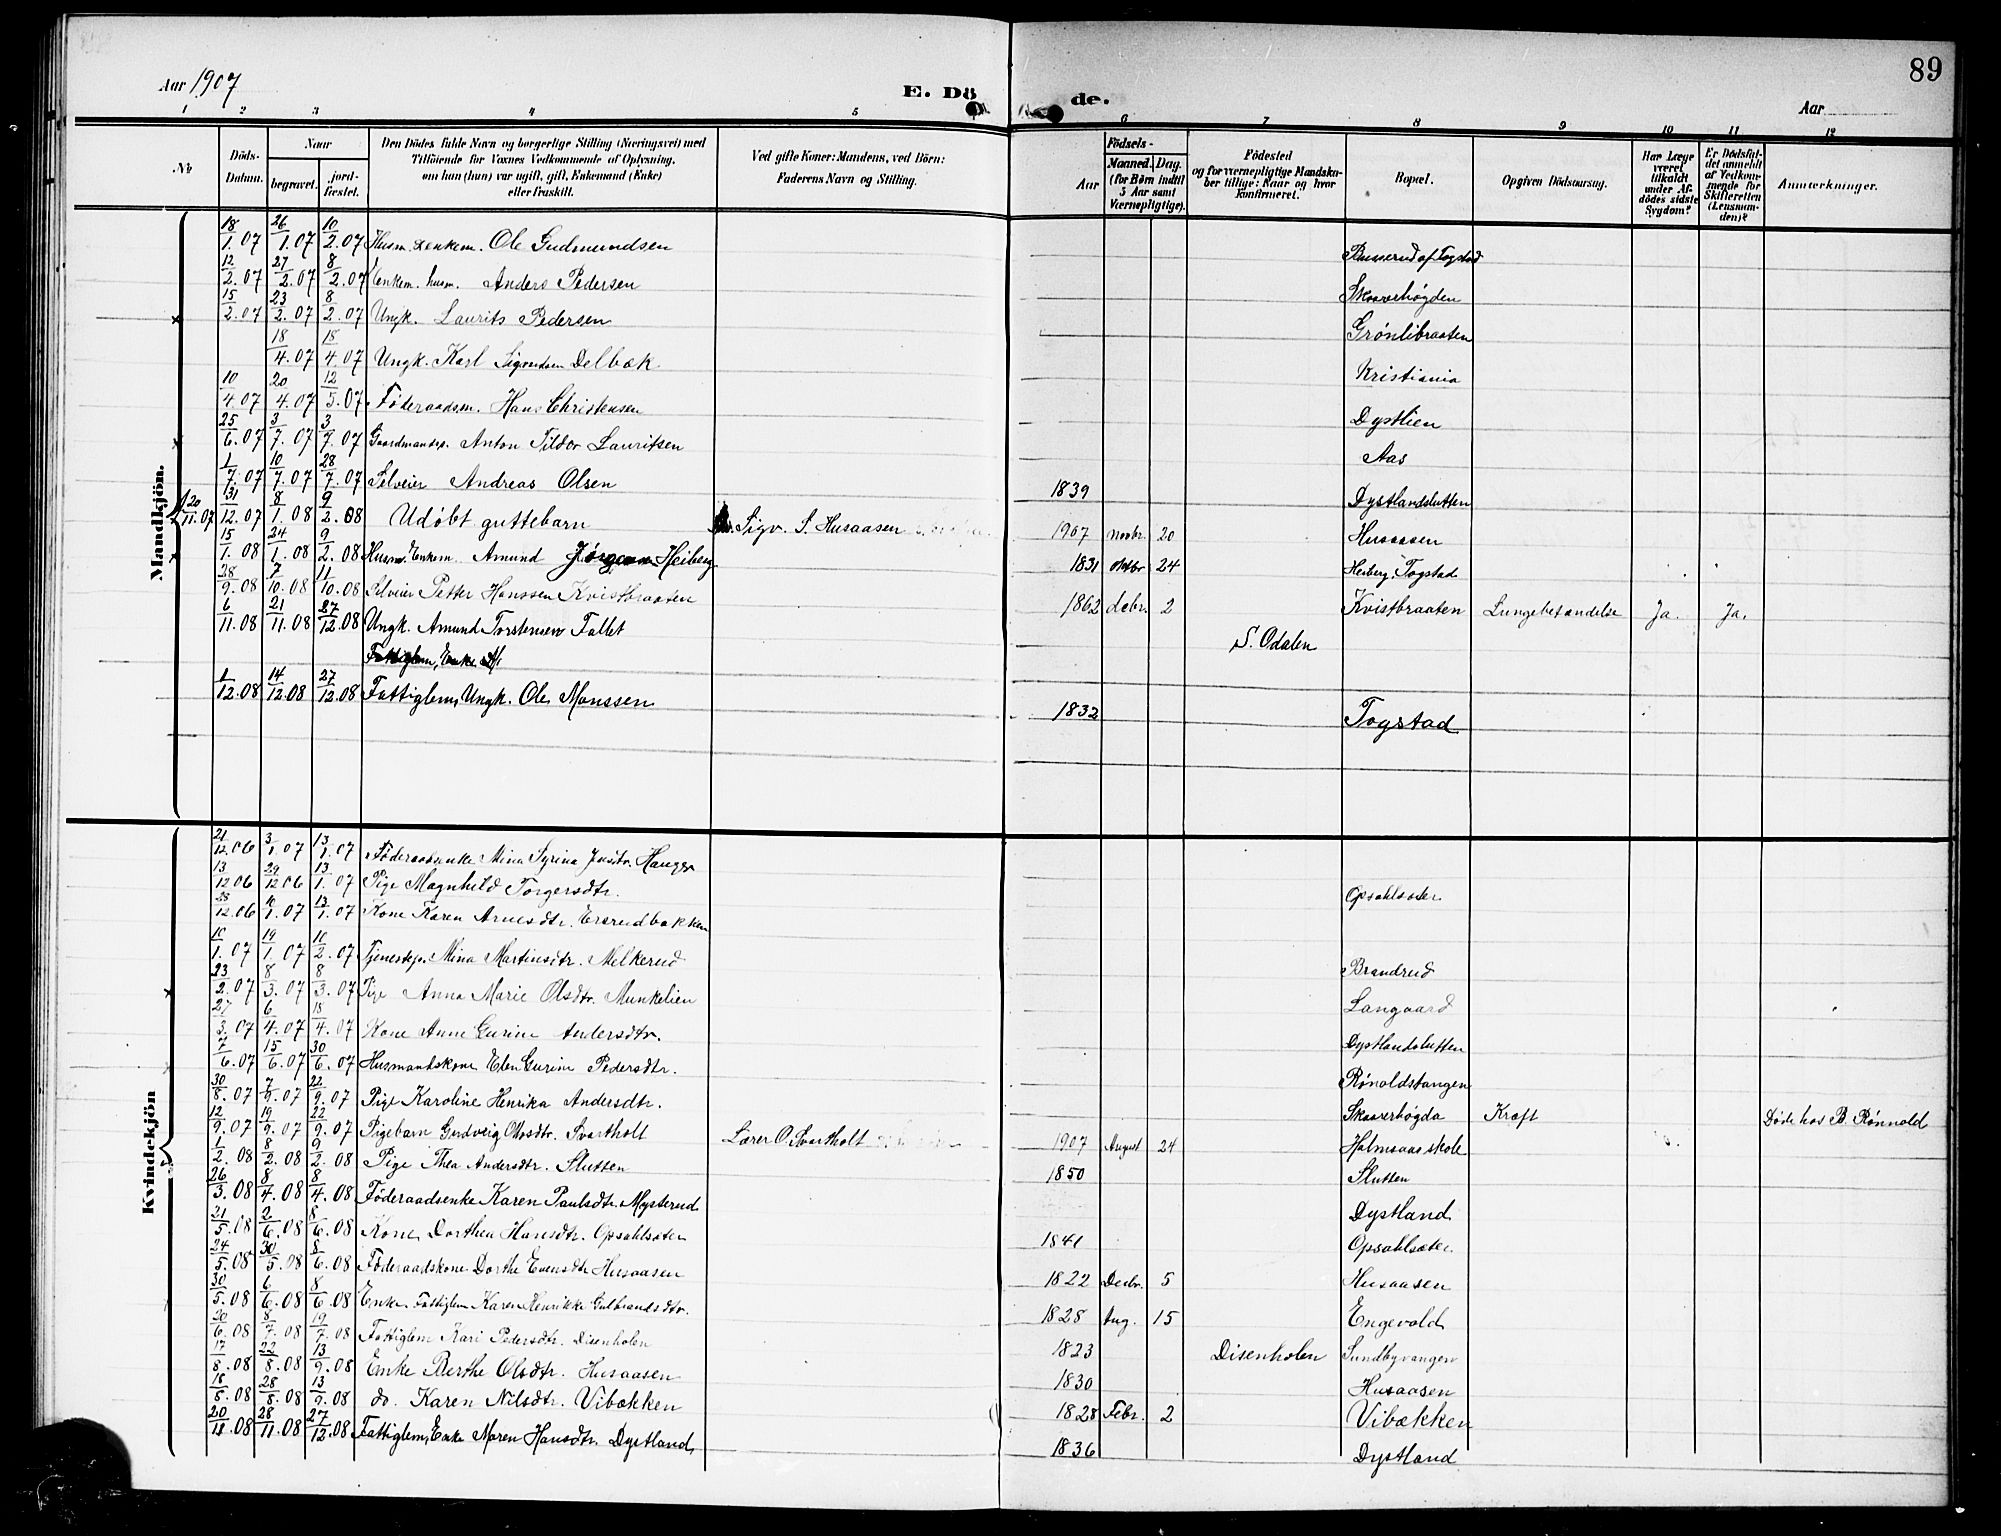 89
Aar 1907
E. Dö
de.
Aar
1 2 3 4 5 6 7 8 9 10 11 12
No
Döds-Datum.
Naar
begravet.
jord-fæstet.
Den Dödes fulde Navn og borgerlige Stilling (Næringsvei) med Tilföiende for Voxnes Vedkommende af Oplysning, om han (hun) var ugift, gift, Enkemand (Enke) eller fraskilt.
Ved gifte Koner: Mandens, ved Börn: Faderens Navn og Stilling.
Födsels-
Aar
Maaned. Dag.
(for Börn indtil 5 Aar samt Værnepligtige).
Födested og for værnepligtige Mandskaber tillige: Naar og hvor konfirmeret.
Bopæl.
Opgiven Dödsaarsag.
Har Læge været tilkaldt under Afdödes sidste Sygdom?
Er Dödsfaldet anmeldt af Vedkommende for Skifteretten (Lensmanden)?
Anmærkninger.
Mandkjön.
18/1.07 26/1.07 10/2.07 Husm. Enkem. Ole Gudmundsen Busserud af Togstad
12/2.07 27/2.07 8/2.07 Enkem. husm. Anders Pedersen Skaarerhøgden
15/2.07 23/2.07 8/2.07 Ungk. Laurits Pedersen Grønlibraaten
18/4.07 18/4.07 Ungk. Karl Sigvardsen Delbæk Kristiania
10/4.07 20/4.07 12/5.07 Føderaadsm. Hans Christensen Dystlien
25/6.07 3/7.07 3/7.07 Gaardmandsp. Anton Tildor Lauritsen Aas
1/7.07 10/7.07 28/7.07 Selveier Andreas Olsen 1839 Dystlandslutten
20/11.07 31/12.07 8/1.08 9/2.08 Udøbt guttebarn Sigv. S. Husaasen 1907 novbr. 20 Husaasen
15/1.08 24/1.08 9/2.08 Husm. Enkem. Amund Jørgensen Heiberg 1831 oktbr 24 Heiberg, Togstad
28/9.08 7/10.08 11/10.08 Selveier Petter Hanssen Kvistbraaten 1862 debr. 2 Kvistbraaten Lungebetændelse Ja. Ja.
6/11.08 21/11.08 27/12.08 Ungk. Amund Torstensen Fallet S. Odalen
Fattiglem, Enke
1/12.08 14/12.08 27/12.08 Fattiglem, Ungk. Ole Monssen 1832 Togstad
Kvindekjön
21/12.06 3/1.07 13/1.07 Føderaadsenke Mina Syrina Haugen
13/12 06 29/12 06 13/1.07 Pige Magnhild Torgersdtr. Opsahlsæter
28/12.06 1.07 13/1.07 Kone Karen Arnesdtr. Ersrudbakken
10/1.07 19/1.07 10/2.07 Tjenestep. Mina Martinsdtr. Melkerud Brandrud
23/2.07 8/3.07 8/3.07 Pige Anna Marie Olsdtr. Munkelien Langaard
27/3.07 6/4.07 18/4.07 Kone Anne Gurine Andersdtr. Dystlandslutten
7/6.07 15/6.07 30/6.07 Husmandskone Elen Gurine Pedersdtr. Rønoldstangen
30/8.07 7/9.07 22/9.07 Pige Karoline Henrika Andersdtr. Skaarerhøgda Kræft Døde hos B. Rønnold
12/9.07 19/9.07 22/9.07 Pigebarn Gudveig Olosdtr. Svartholt Lærer O. Svartholt 1907 August 24 Holmsaas skole
1/2.08 8/2.08 9/2.08 Pige Thea Andersdtr. Slutten 1850 Slutten
26/3.08 8/4.08 8/4.08 Føderaadsenke Karen Paulsdtr. Mysterud Dystland
21/5.08 2/6.08 8/6.08 Kone Dorthea Hansdtr. Opsahlsæter 1841 Opsahlsæter.
24/5.08 30/5.08 8/6.08 Føderaadskone Dorthe Evensdtr Husaasen 1822 Decbr. 5 Husaasen
30/5.08 6/6.08 8/6.08 Enke Fattiglem Karen Henrikke Gulbrandsdtr. 1828 Aug. 15 Engevold
20/6.08 8/7.08 19/7.08 Fattiglem Kari Pedersdtr. Disenholen 1823 Disenholen Sundbyvangen
17/8.08 22/8.08 13/9.08 Enke Berthe Olsdtr. Husaasen 1830 Husaasen
18/8.08 28/8.08 13/9.08 do. Karen Nilsdtr. Vibækken 1828 Febr. 2 Vibækken
20/11.08 28/11.08 27/12.08 Fattiglem, Enke Maren Hansdtr. Dystland 1836 Dystland